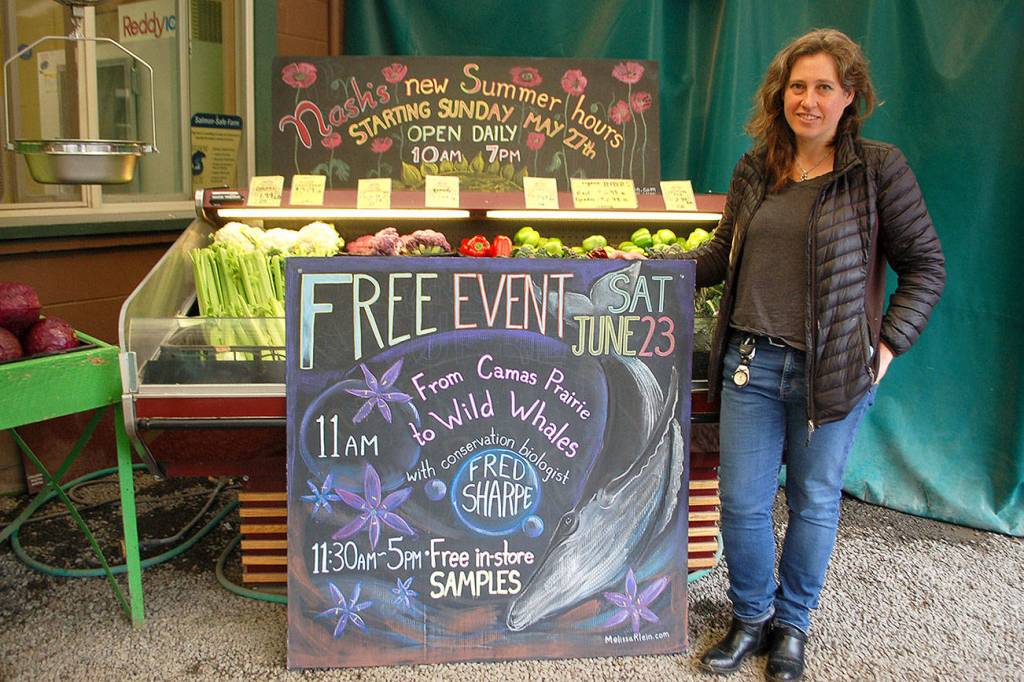 ReddyIC
Salmon-Safe Farm
Nash's new Summer hours
STARTING SUNDAY MAY 27th
OPEN DAILY
10AM 7PM
FREE EVENT
SAT
JUNE 23
From Camas Prairie
to Wild Whales
11AM
with conservation biologist
FRED
SHARPE
11:30AM-5PM • Free in-store
SAMPLES
MelissaKlein.com